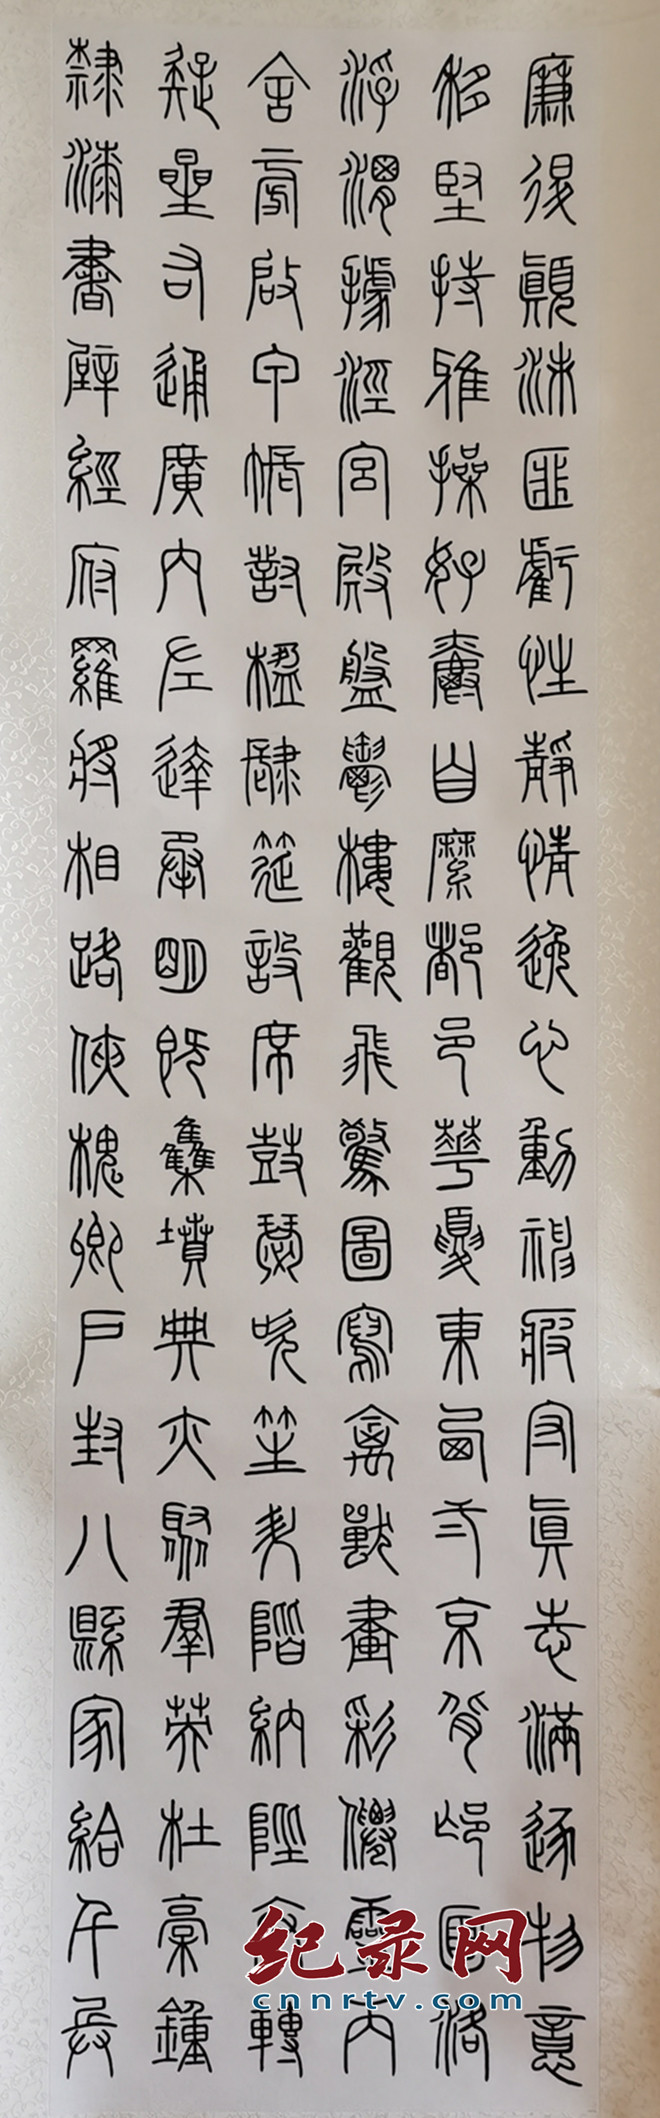 廉退顛沛匪虧性靜情逸心動神疲守眞志滿逐物意
移堅持雅操好爵自縻都邑華夏東西二京背邙面洛
浮渭據涇宮殿盤鬱樓觀飛驚圖寫禽獸畫彩僊靈丙
舍旁啟甲帳對楹肆筵設席鼓瑟吹笙升階納陛弁轉
疑星右通廣內左達承明既集墳典亦聚羣英杜稾鍾
隸漆書壁經府羅將相路俠槐卿戶封八縣家給千兵
纪录网
cnnrtv.com